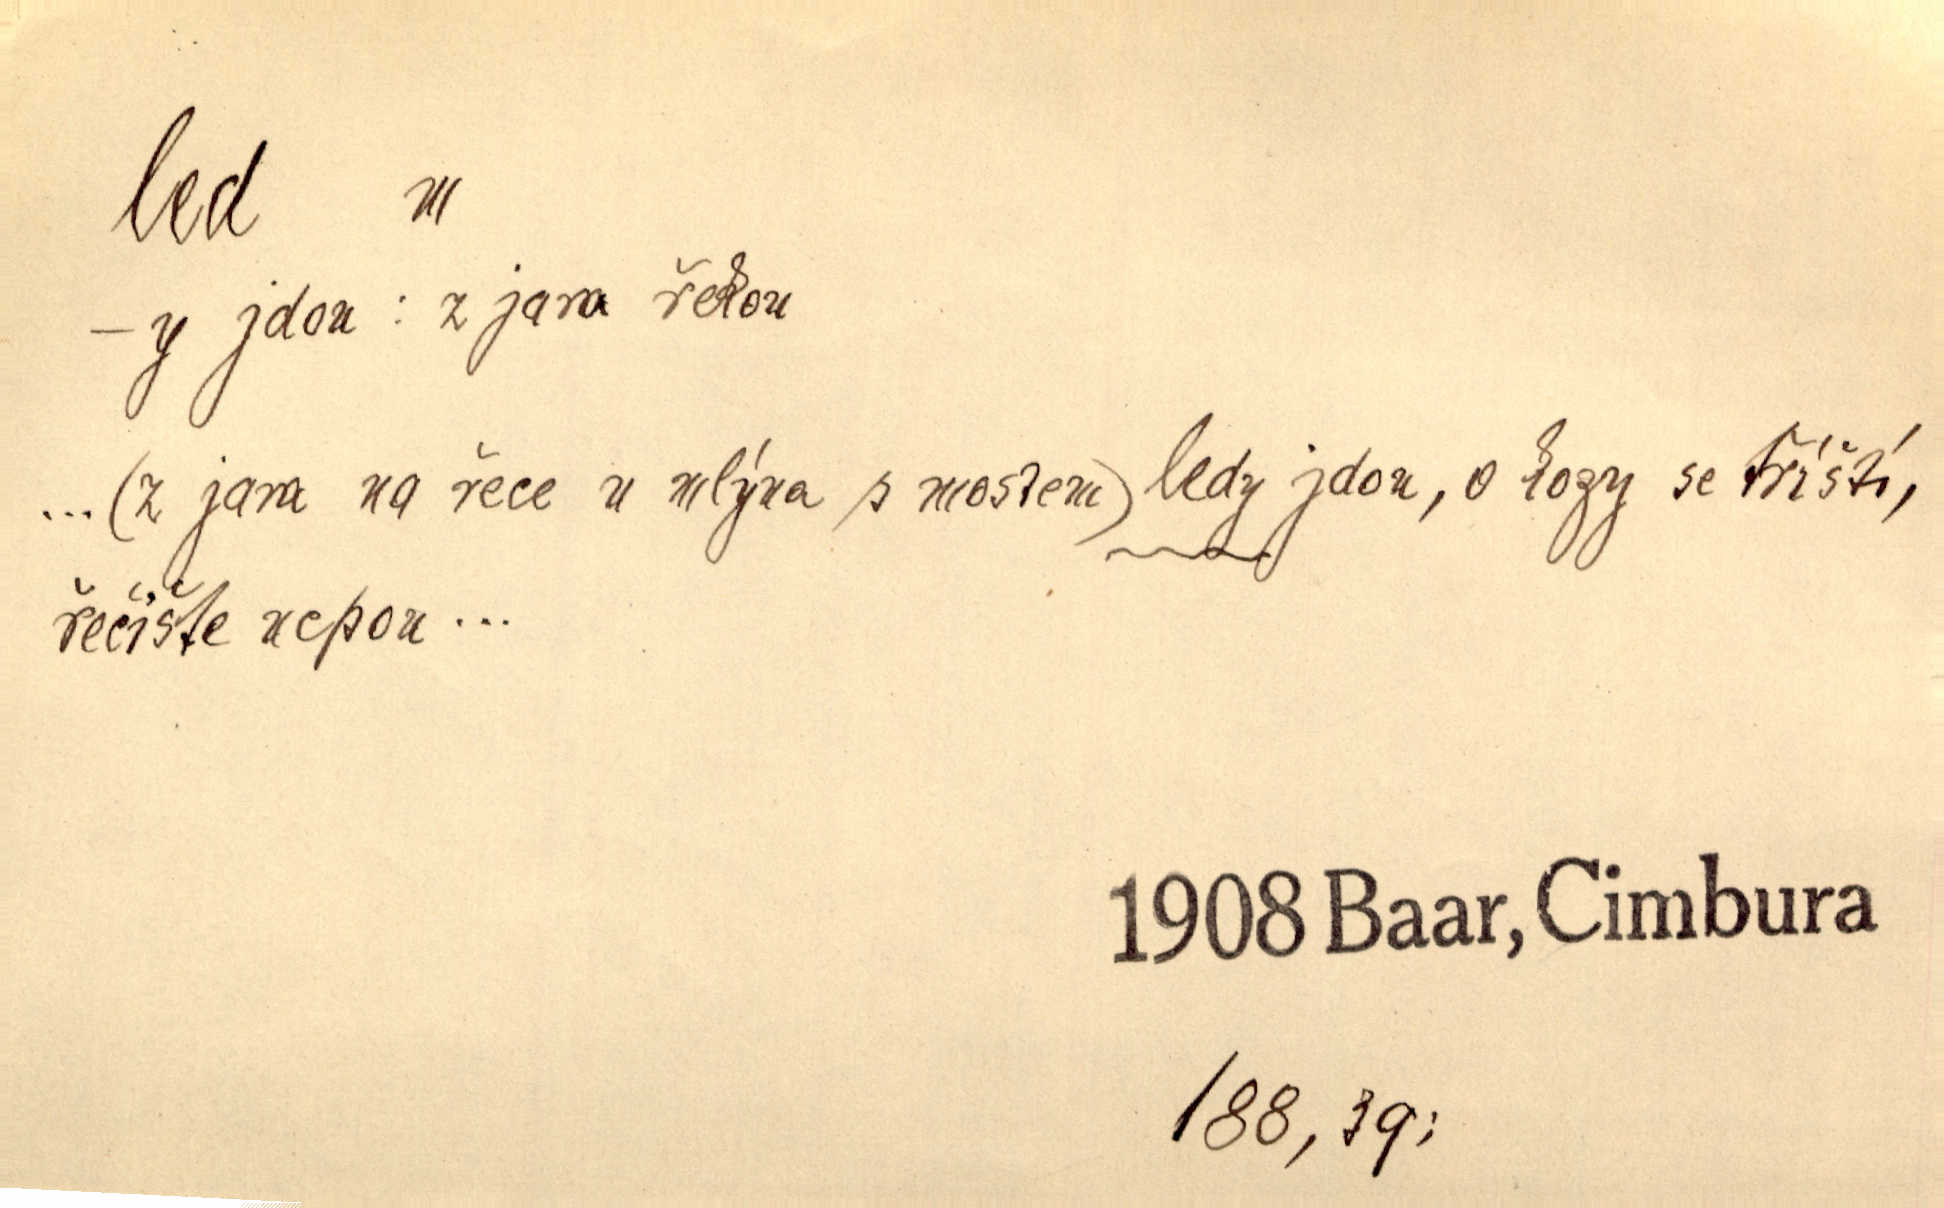 led m
–y jdou : z jara řekou
... (z jara na řece u mlýna s mostem) ledy jdou, o kozy se tříští,
řečiště ucpou ...
1908 Baar, Cimbura
188, 39;